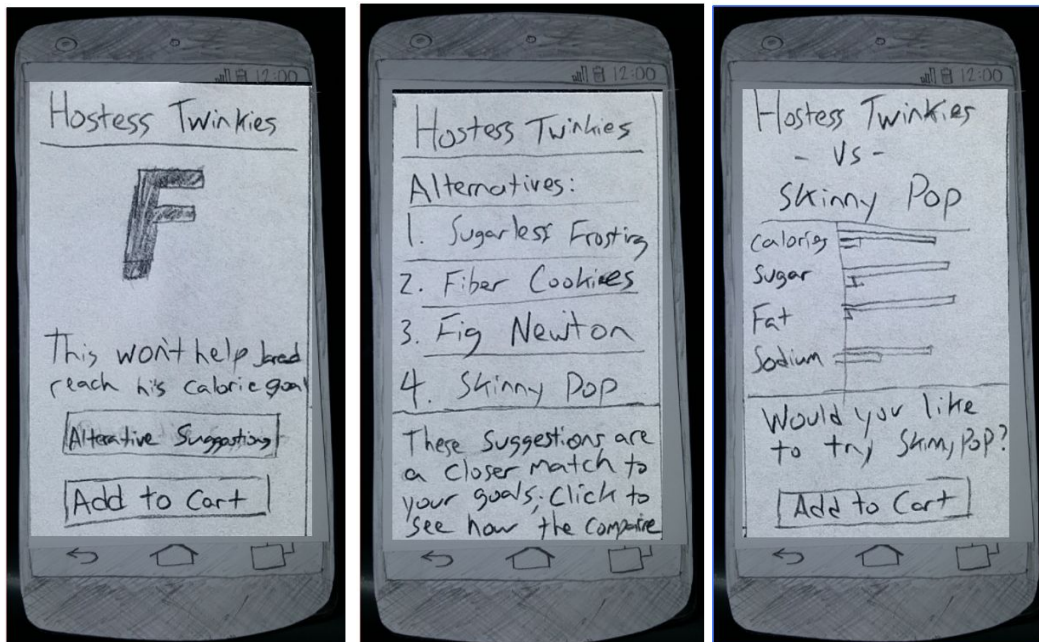 12:00
Hostess Twinkies
F
This won't help Jared
reach his calorie goal
Alterative Suggestions
Add to Cart
12:00
Hostess Twinkies
Alternatives:
1. Sugarless Frosting
2. Fiber Cookies
3. Fig Newton
4. Skinny Pop
These suggestions are
a closer match to
your goals, Click to
see how the compaire
12:00
Hostess Twinkies
- Vs -
Skinny Pop
Calories
Sugar
Fat
Sodium
Would you like
to try Skinny Pop?
Add to Cart